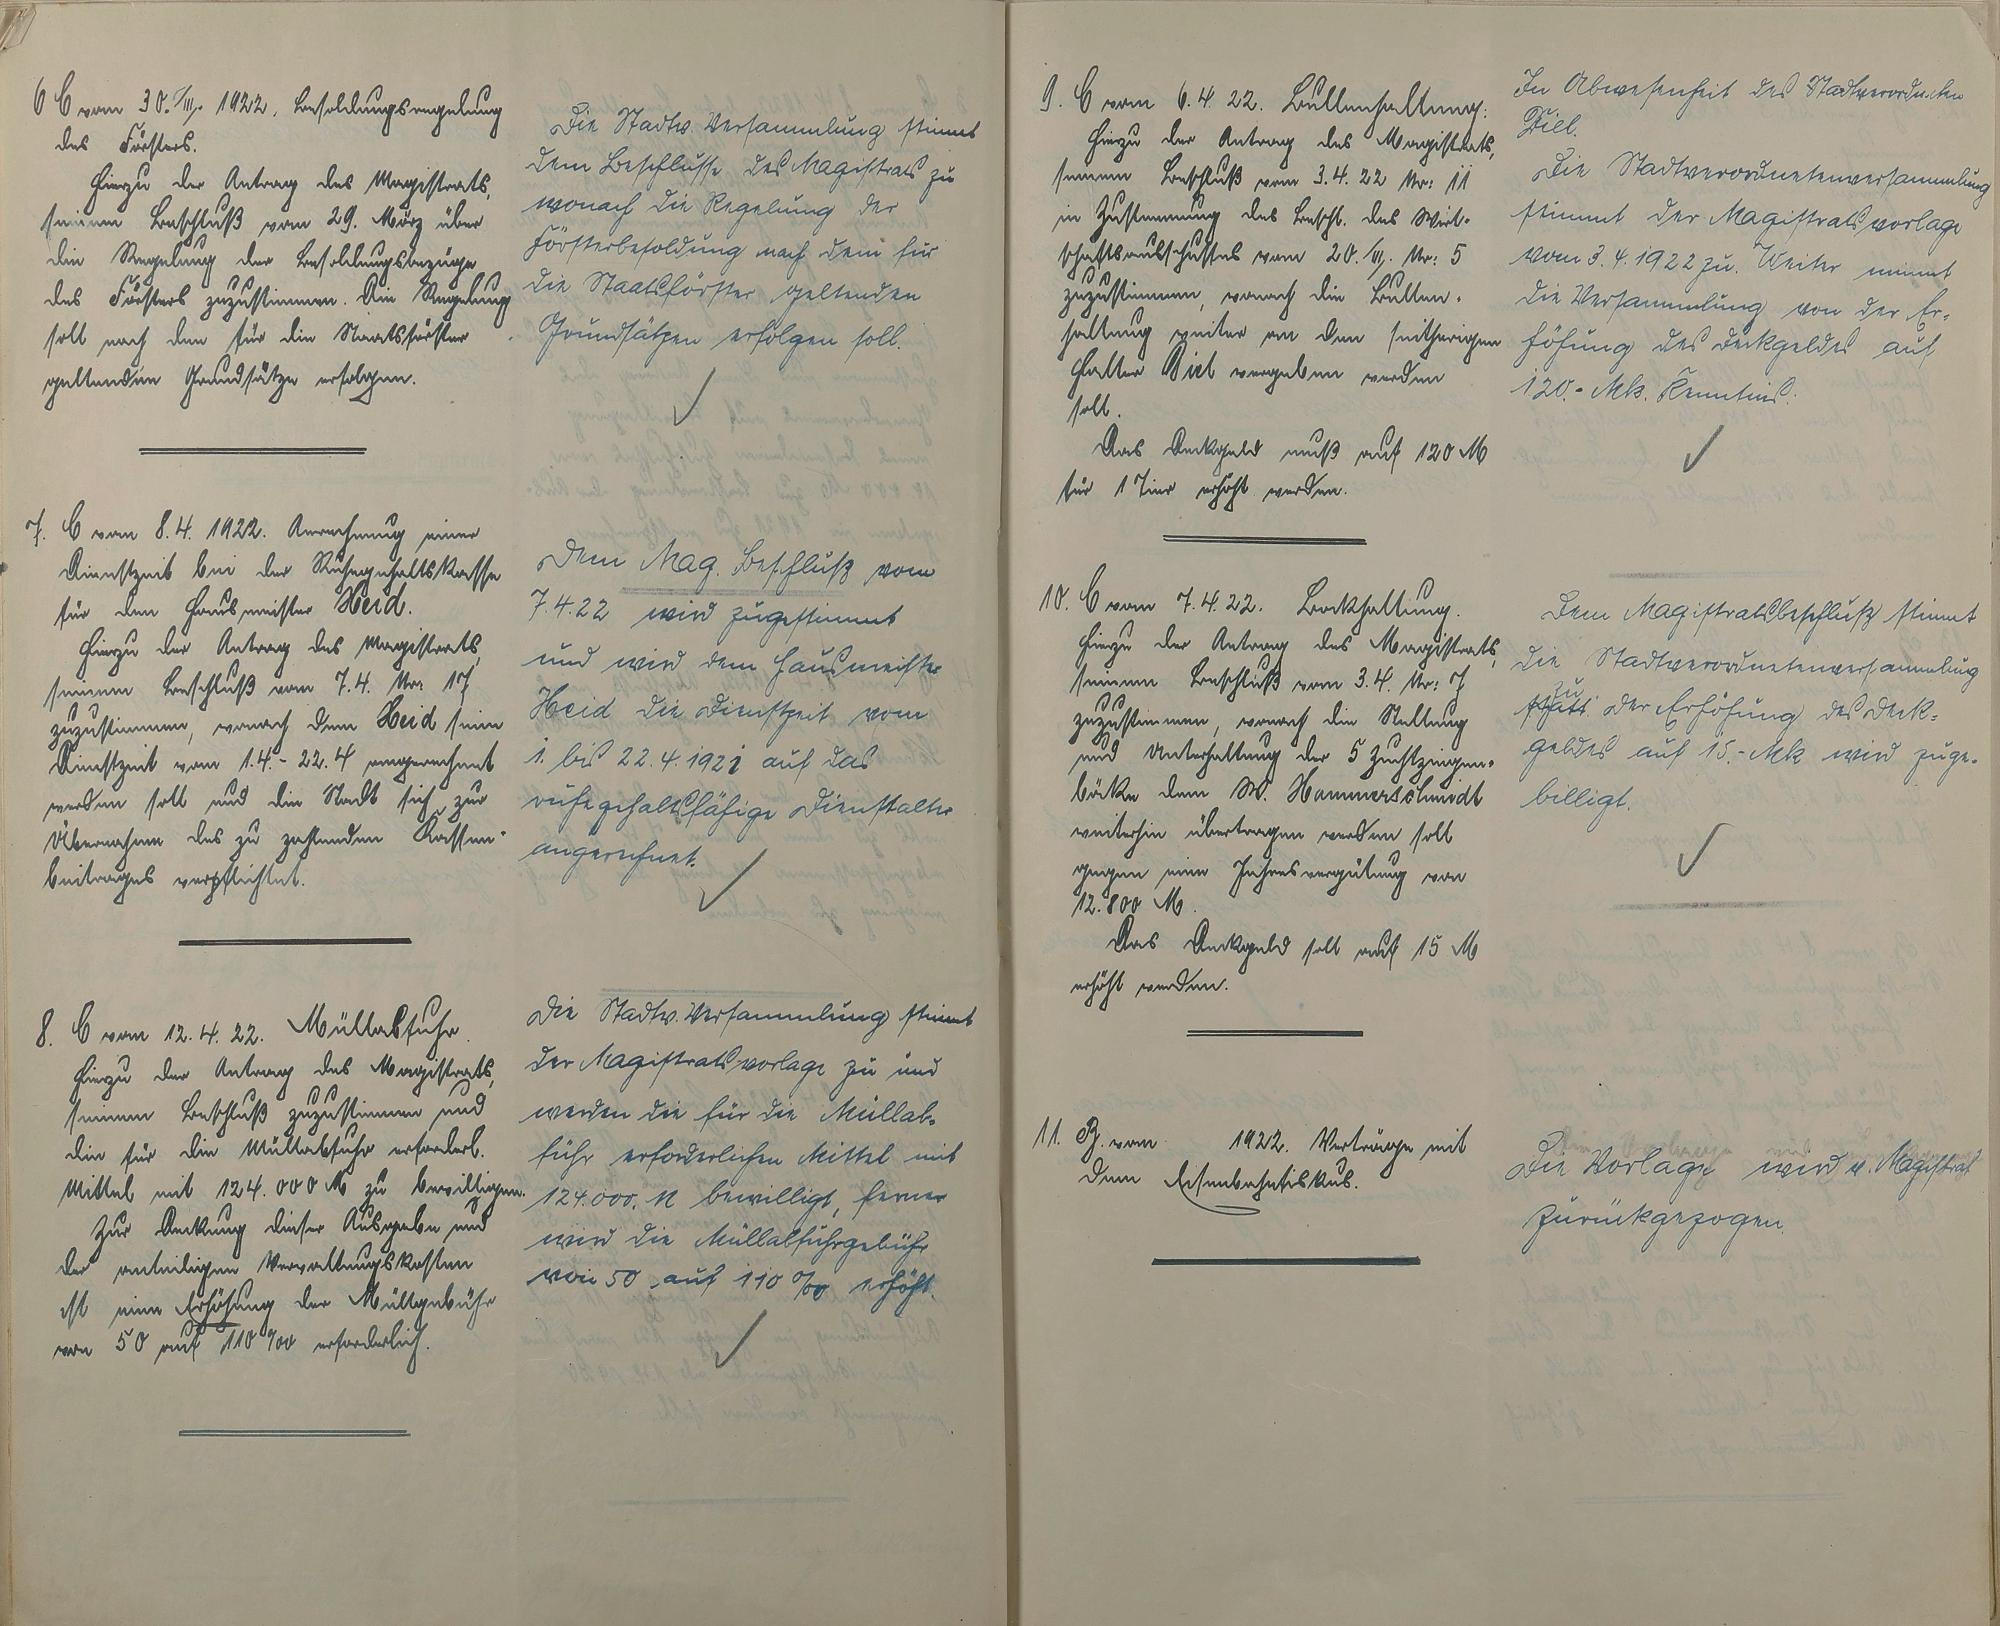 6 C vom 30./III. 1922. Besoldungsregelung
des Försters.
Hierzu der Antrag des Magistrats,
seinem Beschluß vom 29. März über
die Regelung der Besoldungsbezüge
des Försters zuzustimmen. Die Regelung
soll nach den für die Staatsförster
geltenden Grundsätze erfolgen.
Die Stadtv. Versammlung stimmt
dem Beschlusse des Magistrats zu
wonach die Regelung der
Försterbesoldung nach dem für
die Staatsförster geltenden
Grundsätzen erfolgen soll.
7. C vom 8.4. 1922. Anrechnung einer
Dienstzeit bei der Ruhegehaltskasse
für den Hausmeister Heid.
Hierzu der Antrag des Magistrats,
seinem Beschluß vom 7.4. Nr: 17
zuzustimmen, wonach dem Heid seine
Dienstzeit vom 1.4.-22.4 angerechnet
werden soll und die Stadt sich zur
Übernahme des zu zahlenden Kassen-
beitrages verpflichtet.
Dem Mag. Beschluß vom
7.4.22 wird zugestimmt
und wird dem Hausmeister
Heid die Dienstzeit vom
1. bis 22.4.1921 auf das
ruhegehaltsfähige Dienstalter
angerechnet.
8. C vom 12.4.22. Müllabfuhr.
Hierzu der Antrag des Magistrats,
seinem Beschluß zuzustimmen und
die für die Müllabfuhr erforderl.
Mittel mit 124.000 M zu bewilligen.
Zur Deckung dieser Ausgabe und
der anteiligen Verwaltungskosten
ist eine Erhöhung der Müllgebühr
von 50 auf 110 ‰ erforderlich.
Die Stadtv. Versammlung stimmt
der Magistratsvorlage zu und
werden die für die Müllab-
fuhr erforderlichen Mittel mit
124.000. M bewilligt, ferner
wird die Müllabfuhrgebühr
von 50 auf 110 ‰ erhöht.
9. C vom 6.4.22. Bullenhaltung.
Hierzu der Antrag des Magistrats,
seinem Beschluß vom 3.4.22 Nr: 11
in Zustimmung des Beschl. des Wirt-
schaftsausschusses vom 20./III. Nr: 5
zuzustimmen, wonach die Bullen-
haltung weiter an den seitherigen
Halter Diel vergeben werden
soll.
Das Deckgeld muß auf 120 M
für 1 Tier erhöht werden.
In Abwesenheit des Stadtverordneten
Diel.
Die Stadtverordnetenversammlung
stimmt der Magistratsvorlage
vom 3.4.1922 zu. Weiter nimmt
die Versammlung von der Er-
höhung des Deckgeldes auf
120.- Mk. Kenntnis.
10. C vom 7.4.22. Bockhaltung.
Hierzu der Antrag des Magistrats,
seinem Beschluß vom 3.4. Nr: 7
zuzustimmen, wonach die Stellung
und Unterhaltung der 5 Zuchtziegen-
böcke dem W. Hammerschmidt
weiterhin übertragen werden soll
gegen eine Jahresvergütung von
12.800 M.
Das Deckgeld soll auf 15 M
erhöht werden.
Dem Magistratsbeschluß stimmt
die Stadtverordnetenversammlung
zu
der Erhöhung des Deck-
geldes auf 15.- Mk wird zuge-
billigt.
11. B. vom 1922. Verträge mit
dem Eisenbahnfiskus.
Die Vorlage wird v. Magistrat
zurückgezogen.